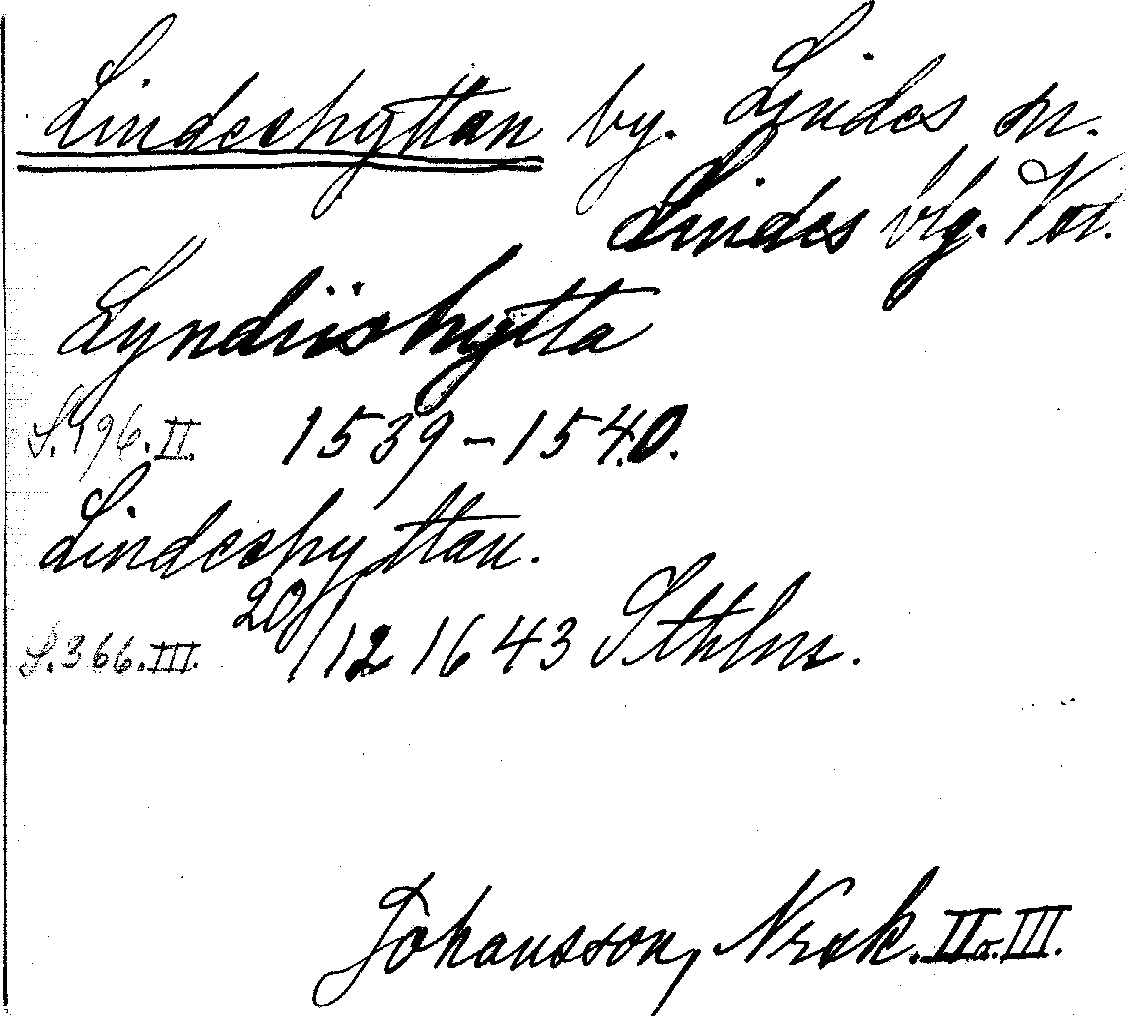 Lindeshyttan by. Lindes sn.
Lindes blg. Vstm.
Lyndiishytta
S.196.II. 1539–1540.
Lindeshyttan.
S.366.III. 20/12 1643 Sthlm.
Johansson, Norak. II o. III.